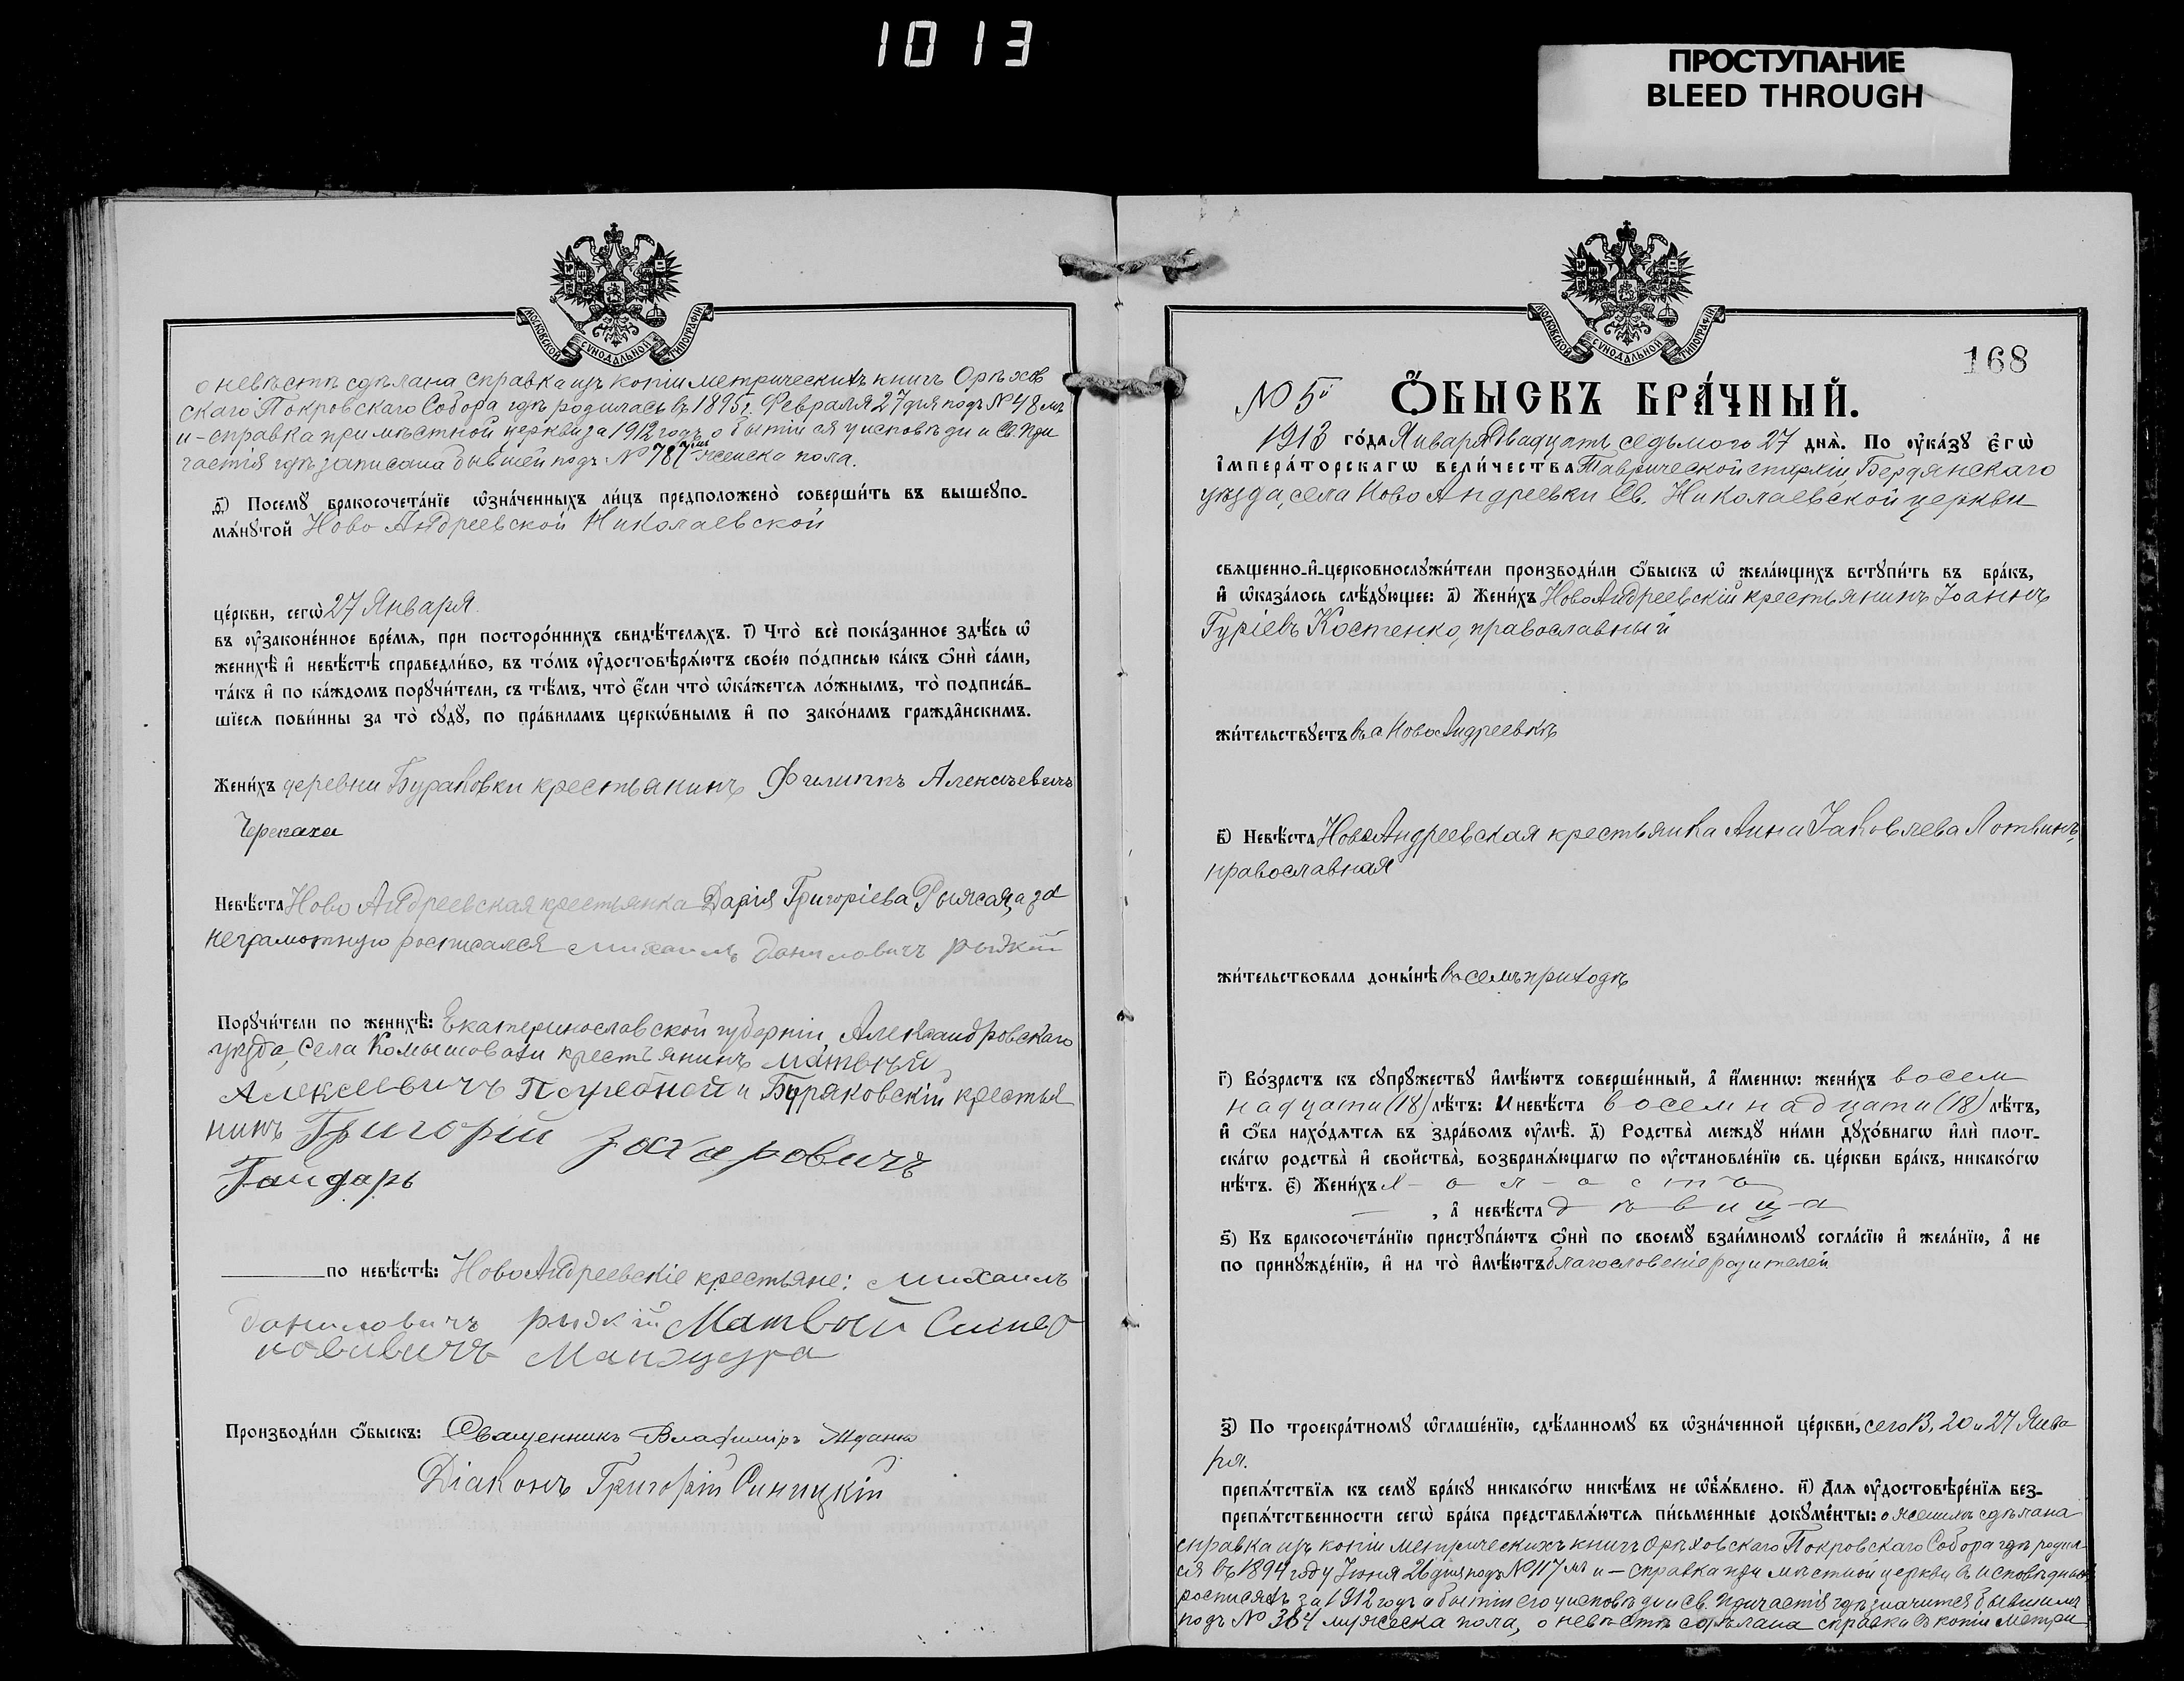 1013
ПРОСТУПАНИЕ
BLEED THROUGH
МОСКОВСКОЙ СѴНОДАЛЬНОЙ ТИПОГРАФІИ
о невѣстѣ сдѣлана справка изъ копіи метрическихъ книгъ Орѣхов
скаго Покровскаго Собора гдѣ родилась въ 1895 г. Февраля 27 дня подъ № 48 мъ
и - справка при мѣстной церкви за 1912 годъ о бытіи ея у исповѣди и Св. При
частія гдѣ записана бывшей подъ № 787 женска пола.
д҃) Посемꙋ бракосочета́нїе ѡ҆зна́ченныхъ ли́цъ предположено̀ соверши́ть въ вышеꙋпо-
мѧ́нꙋтой Ново Андреевской Николаевской
це́ркви, сегѡ̀ 27 Января.
въ ᲂу҆зако́ненное вре́мѧ, при посторо́ннихъ свидѣ́телѧхъ. і҃) Что̀ всѐ пока́занное здѣ́сь ѡ҆
женихѣ̀ и҆ невѣ́стѣ справедли́во, въ то́мъ ᲂу҆достовѣрѧ́ютъ свое́ю по́дписью ка́къ ѻ҆нѝ са́ми,
та́къ и҆ по ка́ждомъ порꙋчи́тели, съ тѣ́мъ, что̀ є҆́сли что̀ ѡ҆ка́жетсѧ ло́жнымъ, то̀ подписа́в-
шїесѧ пови́нны за то̀ сꙋдꙋ̀, по пра́виламъ церко́внымъ и҆ по зако́намъ гражда̑нскимъ.
Жени́хъ деревни Бураковки крестьянинъ Филиппъ Алексѣевичъ
Черепаха
Невѣ́ста Ново Андреевская крестьянка Дарія Григоріева Рыжая, а за
неграмотную росписался Михаилъ Даниловичъ Рыжкій
Порꙋчи́тели по женихѣ̀: Екатеринославской губерніи, Александровскаго
уѣзда, села Комышовахи крестьянинъ Матвѣй
Алексевичъ Погребной и Бураковскій крестья
нинъ Григорій Захаровичъ
Гайдарь
по невѣ́стѣ: Ново Андреевскіе крестьяне: Михаилъ
Даниловичъ Рыжкій Матвей
Манжура
Производи́ли ѻ҆́быскъ: Священникъ Владиміръ Жданко
Діаконъ Григорій Синицкій
МОСКОВСКОЙ СѴНОДАЛЬНОЙ ТИПОГРАФІИ
168
№ 5й
Ѻ҆́БЫСКЪ БРА́ЧНЫЙ.
1913 го́да Января Двадцать седьмого 27 днѧ̀. По ᲂу҆ка́зꙋ є҆гѡ̀
і҆мпера́торскагѡ вели́чества Таврической епархіи, Бердянскаго
уѣзда, села Ново Андреевки Св. Николаевской церкви
свѧщенно-и҆-церковнослꙋжи́тели производи́ли ѻ҆́быскъ ѡ҆ жела́ющихъ встꙋпи́ть въ бра́къ,
и҆ ѡ҆каза́лось слѣ́дꙋющее: а҃) Жени́хъ Ново Андреевскій крестьянинъ Іоаннъ
Гуріевъ Костенко, православный
жи́тельствꙋетъ въ с. Ново Андреевкѣ
в҃) Невѣ́ста Ново Андреевская крестьянка Анна Іаковлева Литвинъ,
православная
жи́тельствовала доны́нѣ въ семъ приходѣ
г҃) Во́зрастъ къ сꙋпрꙋ́жествꙋ и҆мѣ́ютъ соверше́нный, а҆ и҆́меннѡ: жени́хъ восем
надцати (18) лѣ́тъ: и невѣ́ста восемнадцати (18) лѣ́тъ,
и҆ ѻ҆́ба нахо́дѧтсѧ въ здра́вомъ ᲂу҆мѣ̀. д҃) Родства̀ междꙋ̀ ни́ми дꙋхо́внагѡ и҆лѝ плот-
ска́гѡ родства̀ и҆ свойства̀, возбранѧ́ющагѡ по ᲂу҆становле́нїю св. це́ркви бра́къ, никако́гѡ
нѣ́тъ. є҃) Жени́хъ х - о - л - о с т ъ
, а҆ невѣ́ста д ѣ в и ц а
ѕ҃) Къ бракосочета́нїю пристꙋпа́ютъ ѻ҆нѝ по своемꙋ̀ взаи́мномꙋ согла́сїю и҆ жела́нїю, а҆ не
по принꙋжде́нїю, и҆ на то̀ и҆мѣ́ютъ благословеніе родителей
з҃) По троекра́тномꙋ ѡ҆глаше́нїю, сдѣ́ланномꙋ въ ѡ҆зна́ченной це́ркви, сего 13, 20 и 27 Янва
ря.
препѧ́тствїѧ къ семꙋ̀ бра́кꙋ никако́гѡ никѣ́мъ не ѡ҆б̾ѧ́влено. и҃) Длѧ ᲂу҆достовѣре́нїѧ без-
препѧ́тственности сегѡ̀ бра́ка представлѧ́ютсѧ пи́сьменные докꙋме́нты: о женихѣ сдѣлана
справка изъ копіи метрическихъ книгъ Орѣховскаго Покровскаго Собора гдѣ родил-
ся въ 1894 году Іюня 26 дня подъ № 117 мъ и - справка при мѣстной церкви въ исповѣдныхъ
росписяхъ за 1912 годъ о бытіи его у исповѣди и св. Причастія гдѣ значится бывшимъ
подъ № 384 мужеска пола, о невѣстѣ сдѣлана справка въ копіи метри